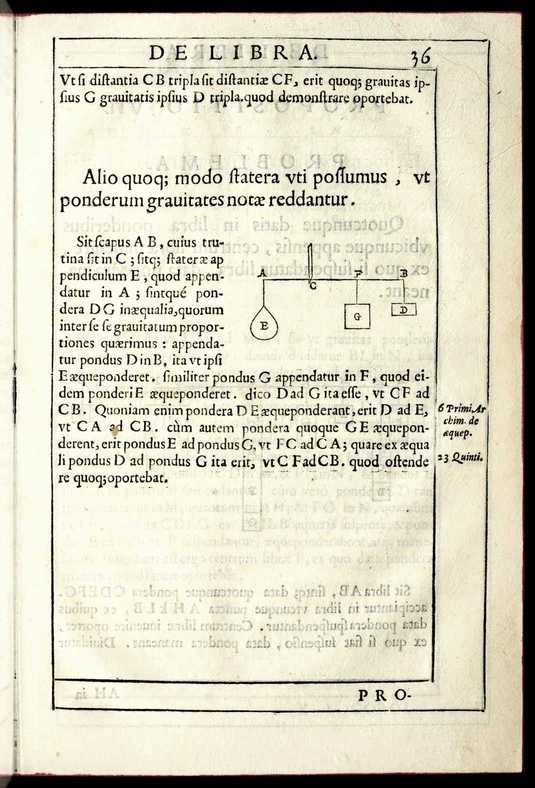 DE LIBRA. 36
Vt si distantia CB tripla sit distantiæ CF, erit quoq; grauitas ip-
sius G grauitatis ipsius D tripla. quod demonstrare oportebat.
Alio quoq; modo statera vti possumus, vt
ponderum grauitates notæ reddantur.
Sit scapus AB, cuius tru-
tina sit in C; sitq; stateræ ap
pendiculum E, quod appen-
datur in A; sintqué pon-
dera DG inæqualia, quorum
inter se se grauitatum propor-
tiones quærimus: appenda-
tur pondus D in B, ita vt ipsi
E æqueponderet. similiter pondus G appendatur in F, quod ei-
dem ponderi E æqueponderet. dico D ad G ita esse, vt CF ad
CB. Quoniam enim pondera DE æqueponderant, erit D ad E,
vt CA ad CB. cùm autem pondera quoque GE æquepon-
derent, erit pondus E ad pondus G, vt FC ad CA; quare ex æqua
li pondus D ad pondus G ita erit, vt CF ad CB. quod ostende
re quoq; oportebat.
A F B
C
E G D
6 Primi Ar
chim. de
æquep.
23 Quinti.
PRO-